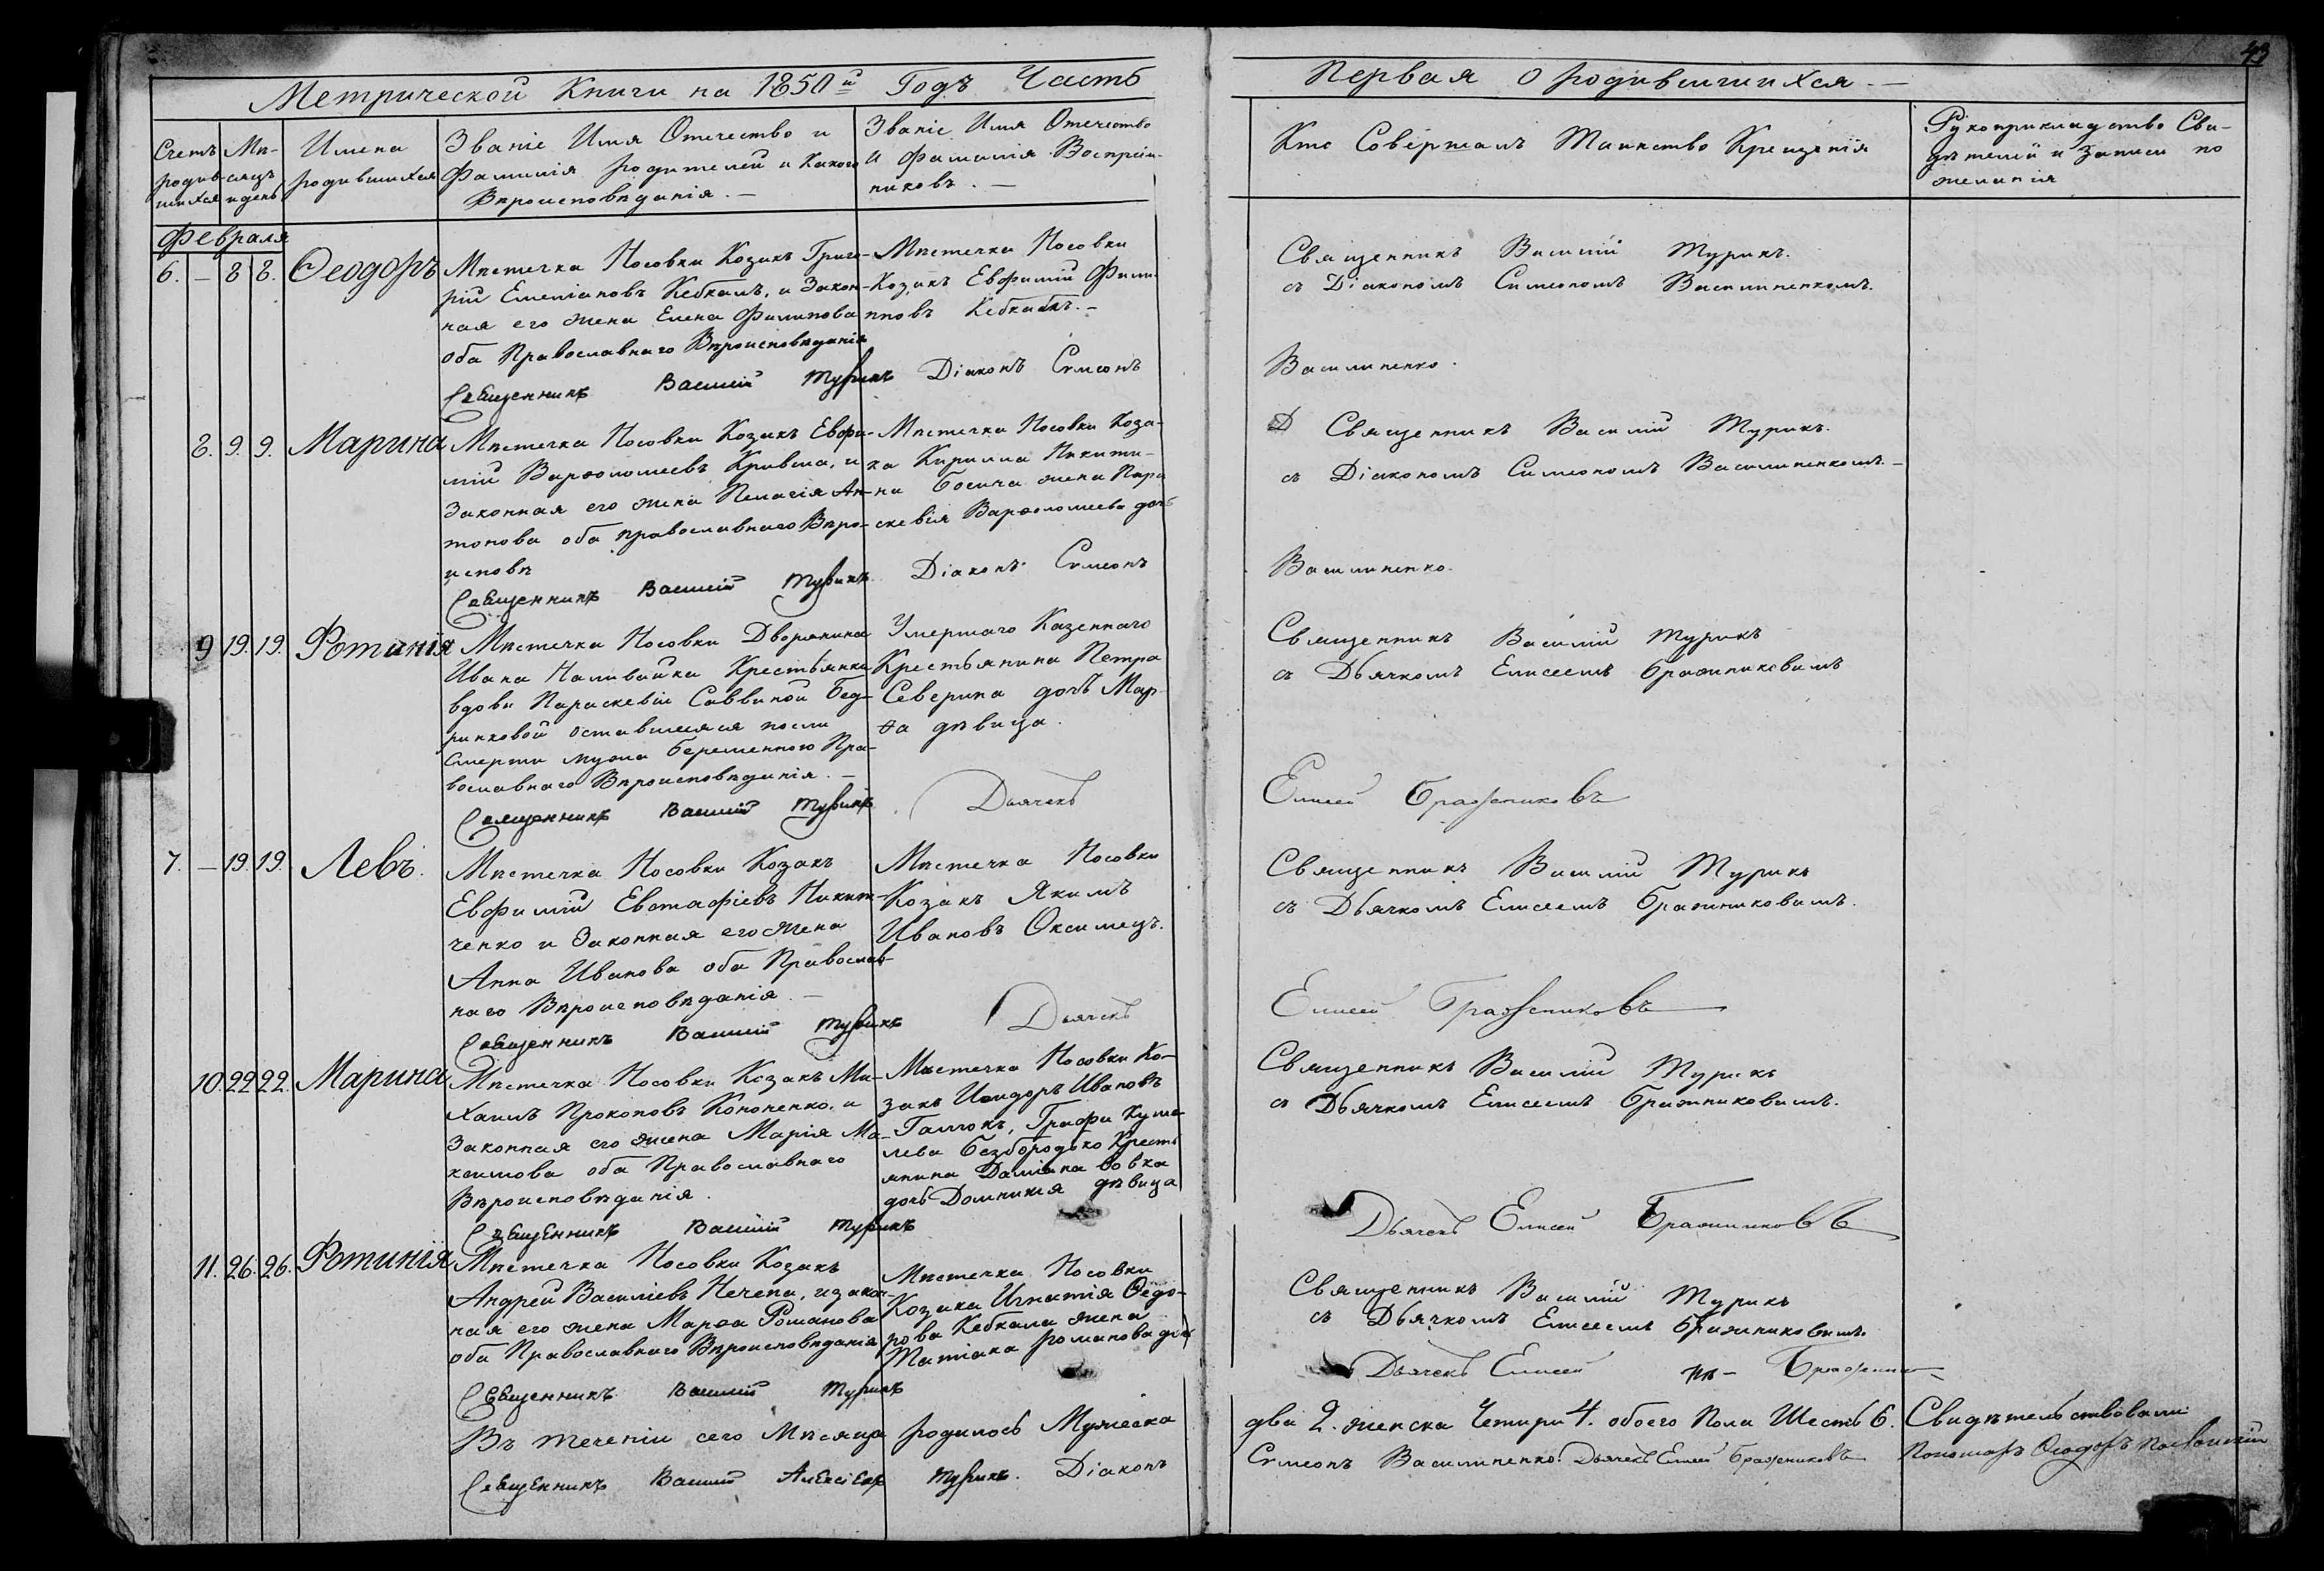 43
Метрической Книги на 1850й Годъ Часть
Первая о родившихся —
Счетъ родив-шихся
Мѣ-сяцъ и день
Имена
родившихся
Званіе Имя Отечество и
Фамилія родителей и Какого
Вѣроисповѣданія. —
Званіе Имя Отечество
и Фамилія Воспріем-
никовъ. —
Кто Совершалъ Таинство Крещенія
Рукоприкладство Сви-
дѣтелей и записи по
желанія
Февраля
6. — 8 8. Ѳеодоръ
Мѣстечка Носовки Козакъ Григо-
рій Емеліановъ Кебкалъ, и Закон-
ная его жена Елена Филипова
оба Православнаго Вѣроисповѣданія
Мѣстечка Носовки
Козакъ Евфимій Фили-
пповъ Кебкалъ. —
Священникъ Василій Турикъ.
съ Діакономъ Симеономъ Василиненкомъ.
Священникъ Василій Турикъ Діаконъ Сѵмеонъ
Василиненко.
8. 9. 9. Марина
Мѣстечка Носовки Козакъ Евфи-
мій Варѳоломеевъ Кривша, и
Законная его жена Пелагія Ан-
тонова оба православнаго Вѣро-
исповѣ
Мѣстечка Носовки Коза-
ка Кирилла Никити-
на Босича жена Пара
скевія Варѳоломеева дочь
Священникъ Василій Турикъ.
съ Діакономъ Симеономъ Василиненкомъ. —
Священникъ Василій Турикъ. Діаконъ Сѵмеонъ
Василиненко.
9 19. 19. Фотинія
Мѣстечка Носовки Дворянина
Ивана Наливайка Крестьянки
вдови Параскевіи Саввиной Бед-
ринковой оставшаяся посли
Смерти мужа беременною Пра-
вославнаго Вѣроисповѣданія. —
Умершаго Казеннаго
Крестьянина Петра
Северина дочь Мар-
ѳа дѣвица.
Священникъ Василій Турикъ
съ Дьячкомъ Елисеемъ Бражниковимъ
Священникъ Василій Турикъ Дьячекъ
Елисей Бражниковъ
7. — 19. 19. Левъ.
Мѣстечка Носовки Козакъ
Евфимій Евстафіевъ Никит-
ченко и Законная его жена
Анна Иванова оба Православ-
наго Вѣроисповѣданія. —
Мѣстечка Носовки
Козакъ Якимъ
Ивановъ Оксимецъ.
Священникъ Василій Турикъ
съ Дьячкомъ Елисеемъ Бражниковимъ.
Священникъ Василій Турикъ Дьячекъ
Елисей Бражниковъ
10. 22 22. Марина
Мѣстечка Носовки Козакъ Ми-
хаилъ Прокоповъ Кононенко, и
Законная его жена Марія Ма-
ксимова оба Православнаго
Вѣроисповѣданія.
Мѣстечка Носовки Ко-
закъ Исидоръ Ивановъ
Галчокъ, Графа Куше-
лева Безбородько Кресть
янина Даміана Вовка
дочь Домникія дѣвица
Священникъ Василій Турикъ
съ Дьячкомъ Елисеемъ Бражниковимъ.
Священникъ Василій Турикъ
Дьячекъ Елисей Бражниковъ
11. 26. 26. Фотинія
Мѣстечка Носовки Козакъ
Андрей Василіевъ Нечепа, и закон-
ная его жена Марѳа Романова
оба Православнаго Вѣроисповѣданія
Мѣстечка Носовки
Козака Игнатія Ѳедо-
рова Кебкала жена
Татіана романова дочь
Священникъ Василій Турикъ
съ Дьячкомъ Елисеемъ Бражниковимъ.
Священникъ Василій Турикъ
Дьячекъ Елисей
Въ теченіи сего Мѣсяца родилось Мужеска
два 2. женска Четири 4. обоего Пола Шесть 6. Свидѣтельствовали
Священникъ Василій Алексіевъ Турикъ. Діаконъ
Сѵмеонъ Василиненко. Дьячекъ Елисей Бражниковъ Пономарь Ѳеодоръ